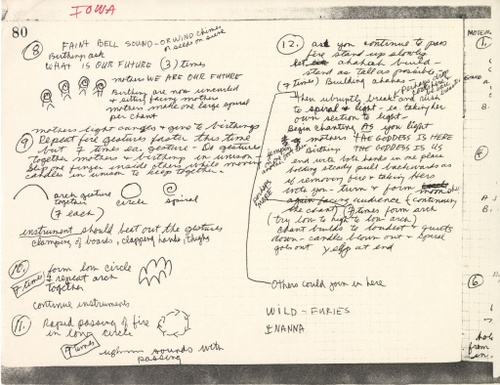 IOWA
80
8
FAINT BELL SOUND - OR WIND chimes
Birthing ask
WHAT IS OUR FUTURE (3) times
mothers WE ARE OUR FUTURE
Birthing are now uncurled
& sitting facing mother
mothers make one large spiral
per chant
mothers light candles & give to birthings
9 Repeat fire gesture faster this time
but 7 times ea. gesture - Do gesture
together mothers & birthing in unison -
candles in unison to keep together.
arch gesture
together
(7 each)
circle
spiral
instrument should beat out the gestures
clanging of boards, clapping hands, thighs
10.
7 times
form low circle
& repeat arch
together
continue instruments
11.
Rapid passing of fire
in low circle
7 times
sounds with
passing
12.
as you continue to pass
fire stand up slowly
let ahahah build -
stand as tall as possible
(7 times) Building ahahas
Then abruptly break and rush
to spiral & light - ie. taking her
own section to light -
Begin chanting AS you light
mothers THE GODDESS IS HERE
Birthing THE GODDESS IS US
end with both hands in one place
holding steady pull backwards as
if removing fire & taking Hero
with you - turn & form
again facing audience (continuing
the chant) (7) times form arch
(try low to high to low - arch)
Chant builds to loudest & quiets
down - candles blown out & spiral
goes out yelp at end
Others could join in here
WILD - FURIES
INANNA
1.
6